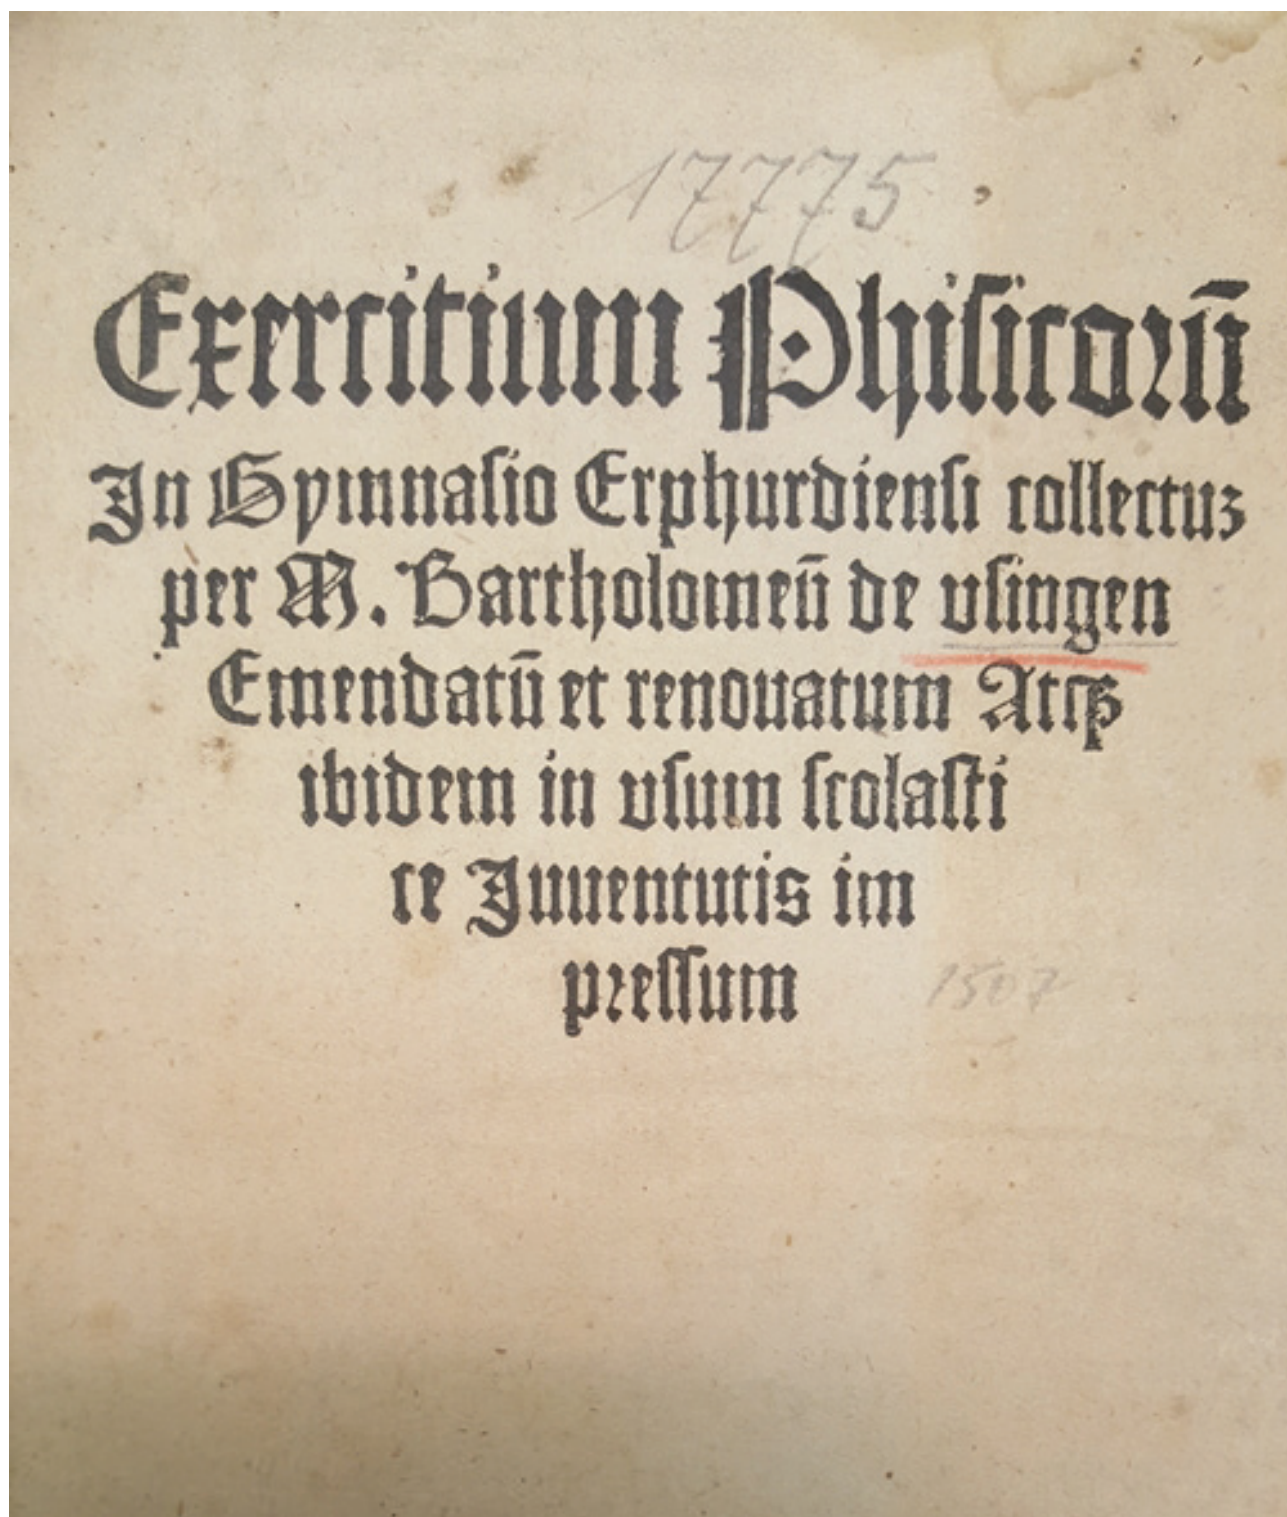 17775
Exercitium Phisicorū
In Gymnasio Erphurdiensi collectuʒ
per M. Bartholomeū de vsingen
Emendatū et renouatum Atqꝫ
ibidem in vsum scolasti
ce Juuentutis im
pressum
1507